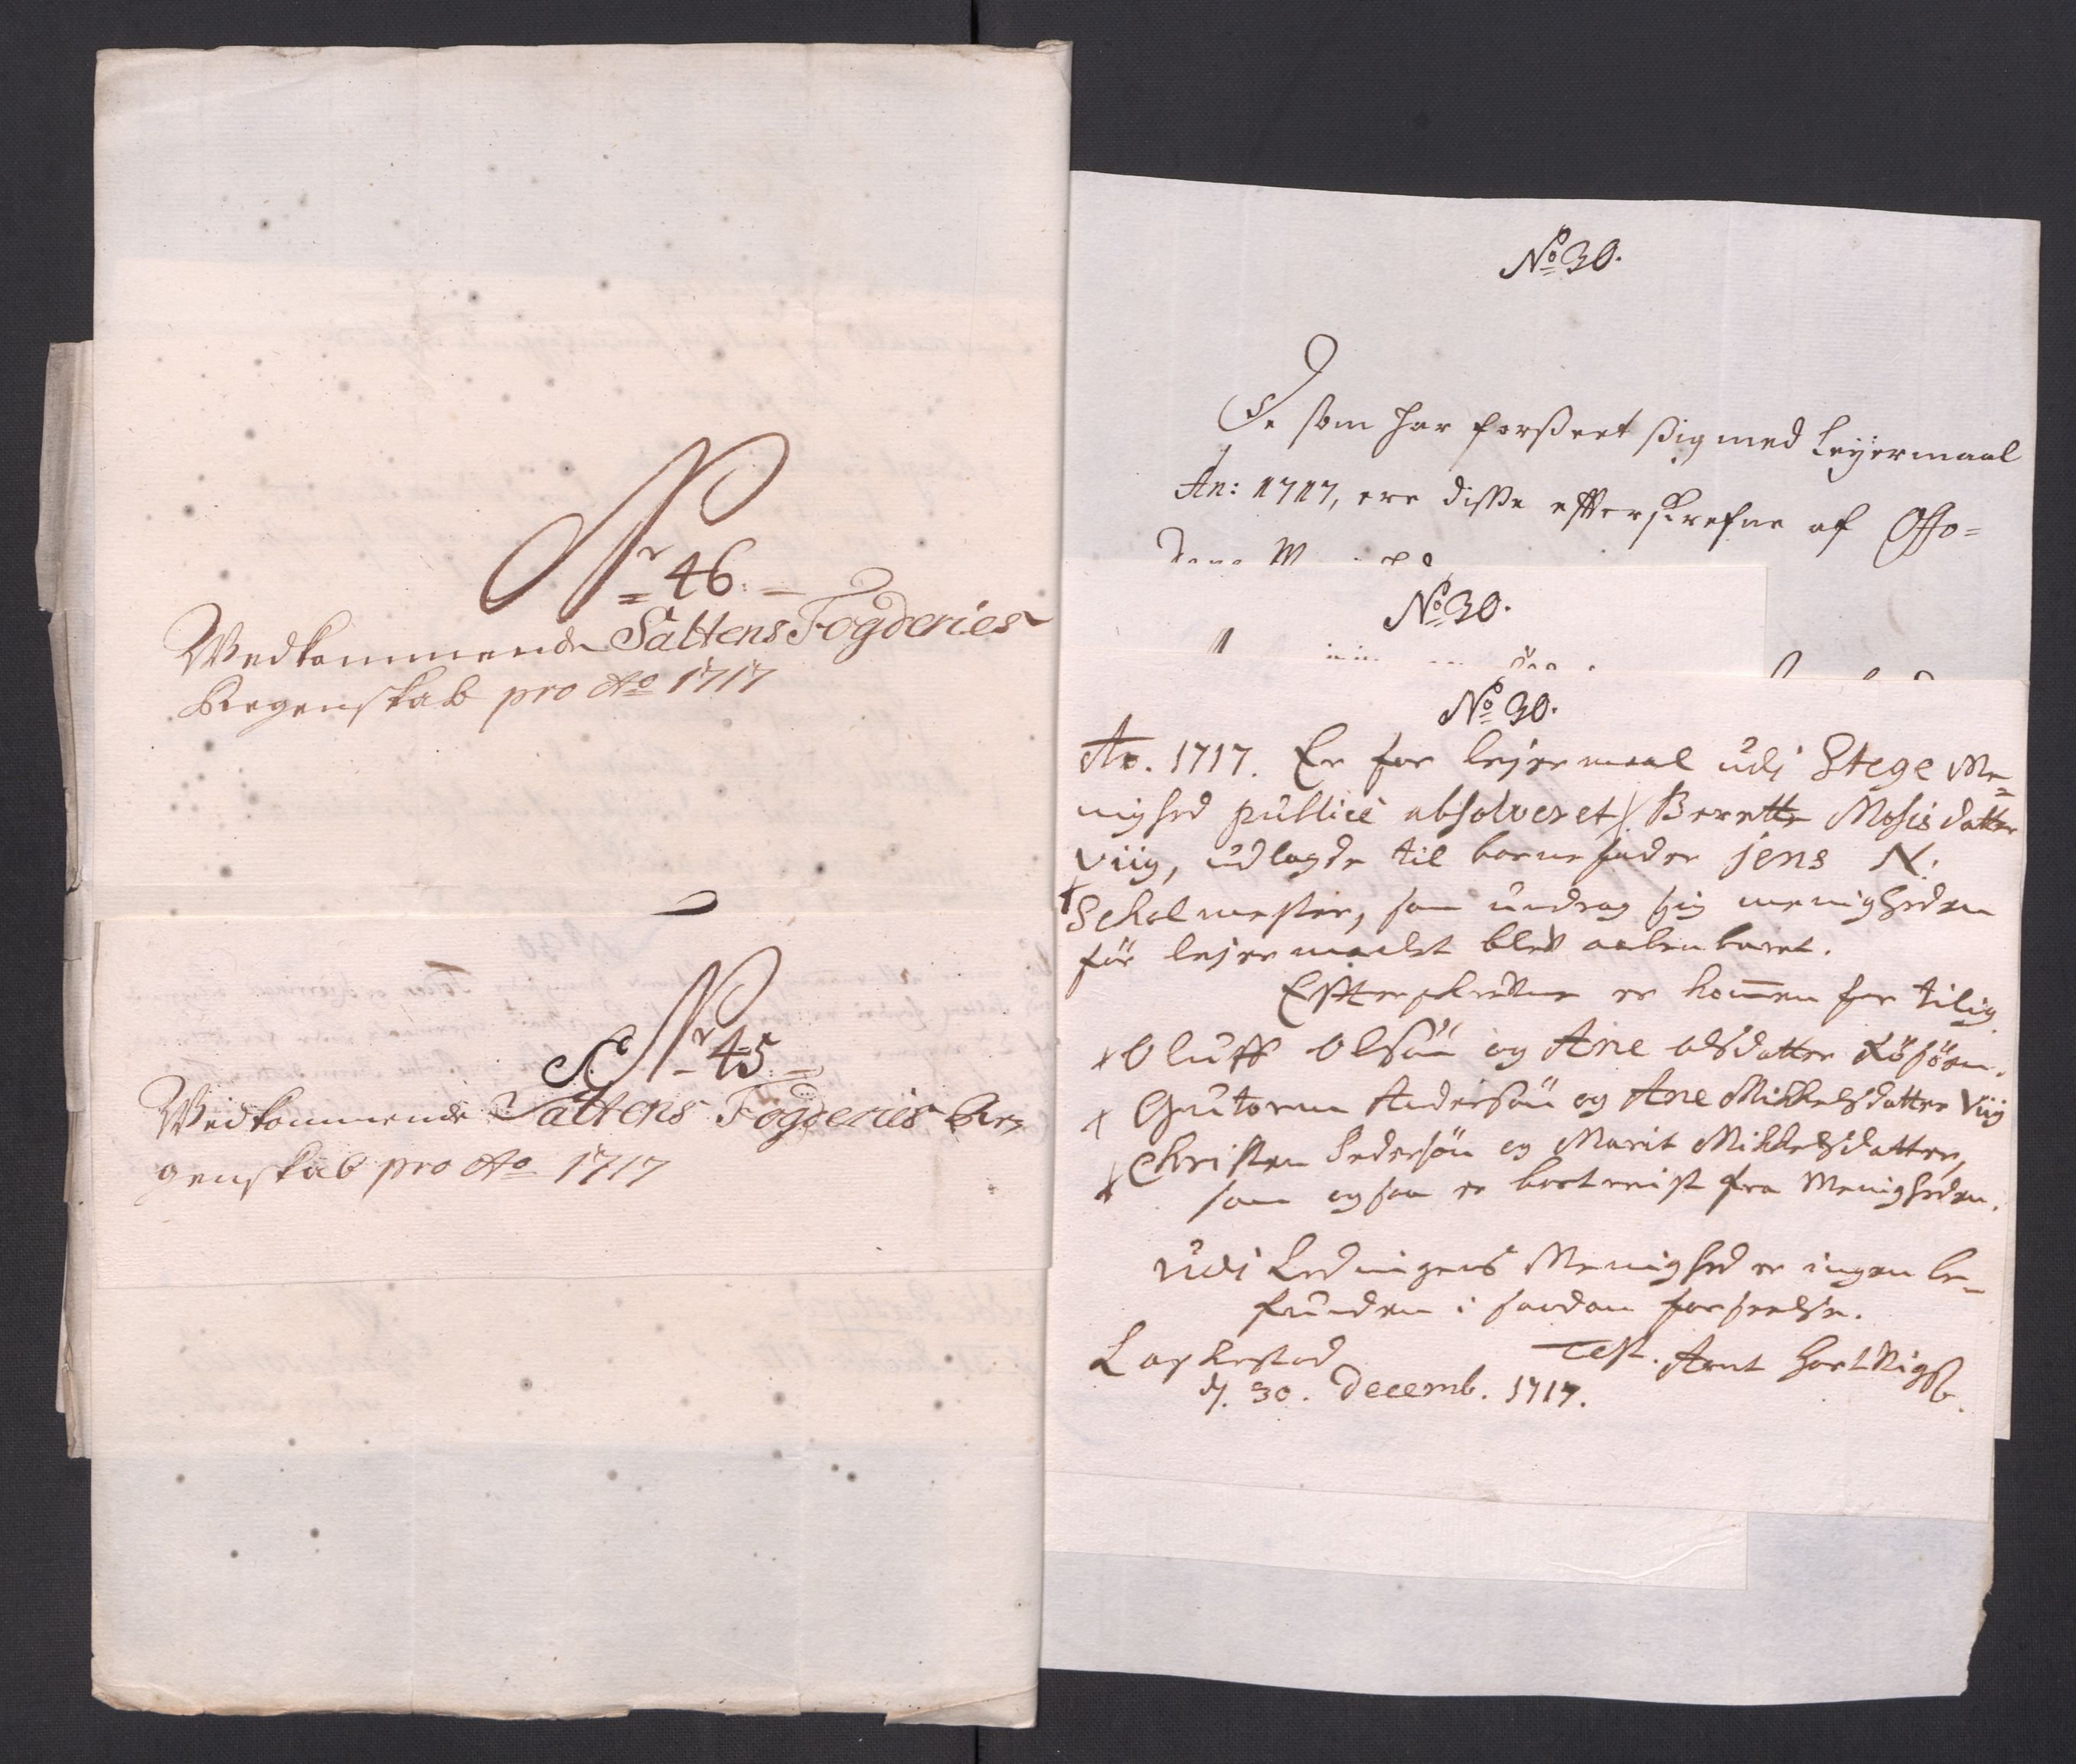 Nr 46.
Wedkommende Saltens Fogderies
Regenskab pro Ao 1717
Nr 45
Wedkommende Saltens Fogderies Re=
genskab pro Ao 1717
No 30.
De som har forseet sig med Leyermaal
An: 1717, ere disse efterskrefne af Ofo=
No 30.
No 30.
Ao. 1717. Er for lejermaal udj Stege Me=
nighed publicè absolveret /. Berette Mosis datter
Viig, udlagde til barnefader jens N.
Scholmester, som undrog sig menigheden
för lejermaalet blev aabenbaret.
Efterskrevne er kommen for tilig
Oluff Olsön og Ane olsdatter
Guttorm Andersön og Ane Mikkelsdatter Viig
Christen Pedersön og Marit Mikkelsdatter,
som ogsaa er bortreist fra Menigheden.
Udi Lødingens Menighed er ingen be=
funden i saadan forseelse.
Test. Arnt Hartvigs.
d. 30. Decemb. 1717.